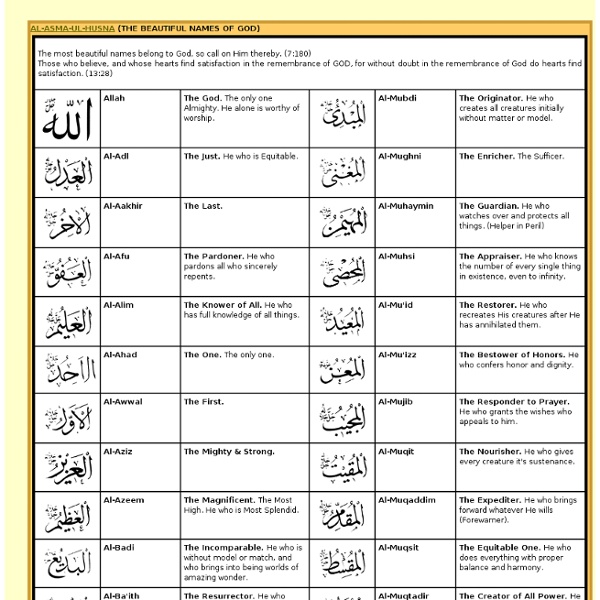 AL-ASMA-UL-HUSNA (THE BEAUTIFUL NAMES OF GOD)
The most beautiful names belong to God, so call on Him thereby. (7:180)
Those who believe, and whose hearts find satisfaction in the remembrance of GOD, for without doubt in the remembrance of God do hearts find
satisfaction. (13:28)
الله
Allah
The God. The only one
Almighty. He alone is worthy of
worship.
المبدئ
Al-Mubdi
The Originator. He who
creates all creatures initially
without matter or model.
العدل
Al-Adl
The Just. He who is Equitable.
المغني
Al-Mughni
The Enricher. The Sufficer.
الآخر
Al-Aakhir
The Last.
المهيمن
Al-Muhaymin
The Guardian. He who
watches over and protects all
things. (Helper in Peril)
العفو
Al-Afu
The Pardoner. He who
pardons all who sincerely
repents.
المحصي
Al-Muhsi
The Appraiser. He who knows
the number of every single thing
in existence, even to infinity.
العليم
Al-Alim
The Knower of All. He who
has full knowledge of all things.
المعيد
Al-Mu'id
The Restorer. He who
recreates His creatures after He
has annihilated them.
الاحد
Al-Ahad
The One. The only one.
المعز
Al-Mu'izz
The Bestower of Honors. He
who confers honor and dignity.
الأول
Al-Awwal
The First.
المجيب
Al-Mujib
The Responder to Prayer.
He who grants the wishes who
appeals to him.
العزيز
Al-Aziz
The Mighty & Strong.
المقيت
Al-Muqit
The Nourisher. He who gives
every creature it's sustenance.
العظيم
Al-Azeem
The Magnificent. The Most
High. He who is Most Splendid.
المقدم
Al-Muqaddim
The Expediter. He who brings
forward whatever He wills
(Forewarner).
البديع
Al-Badi
The Incomparable. He who is
without model or match, and
who brings into being worlds of
amazing wonder.
المقسط
Al-Muqsit
The Equitable One. He who
does everything with proper
balance and harmony.
Al-Ba'ith
The Resurrector. He who
Al-Muqtadir
The Creator of All Power. He